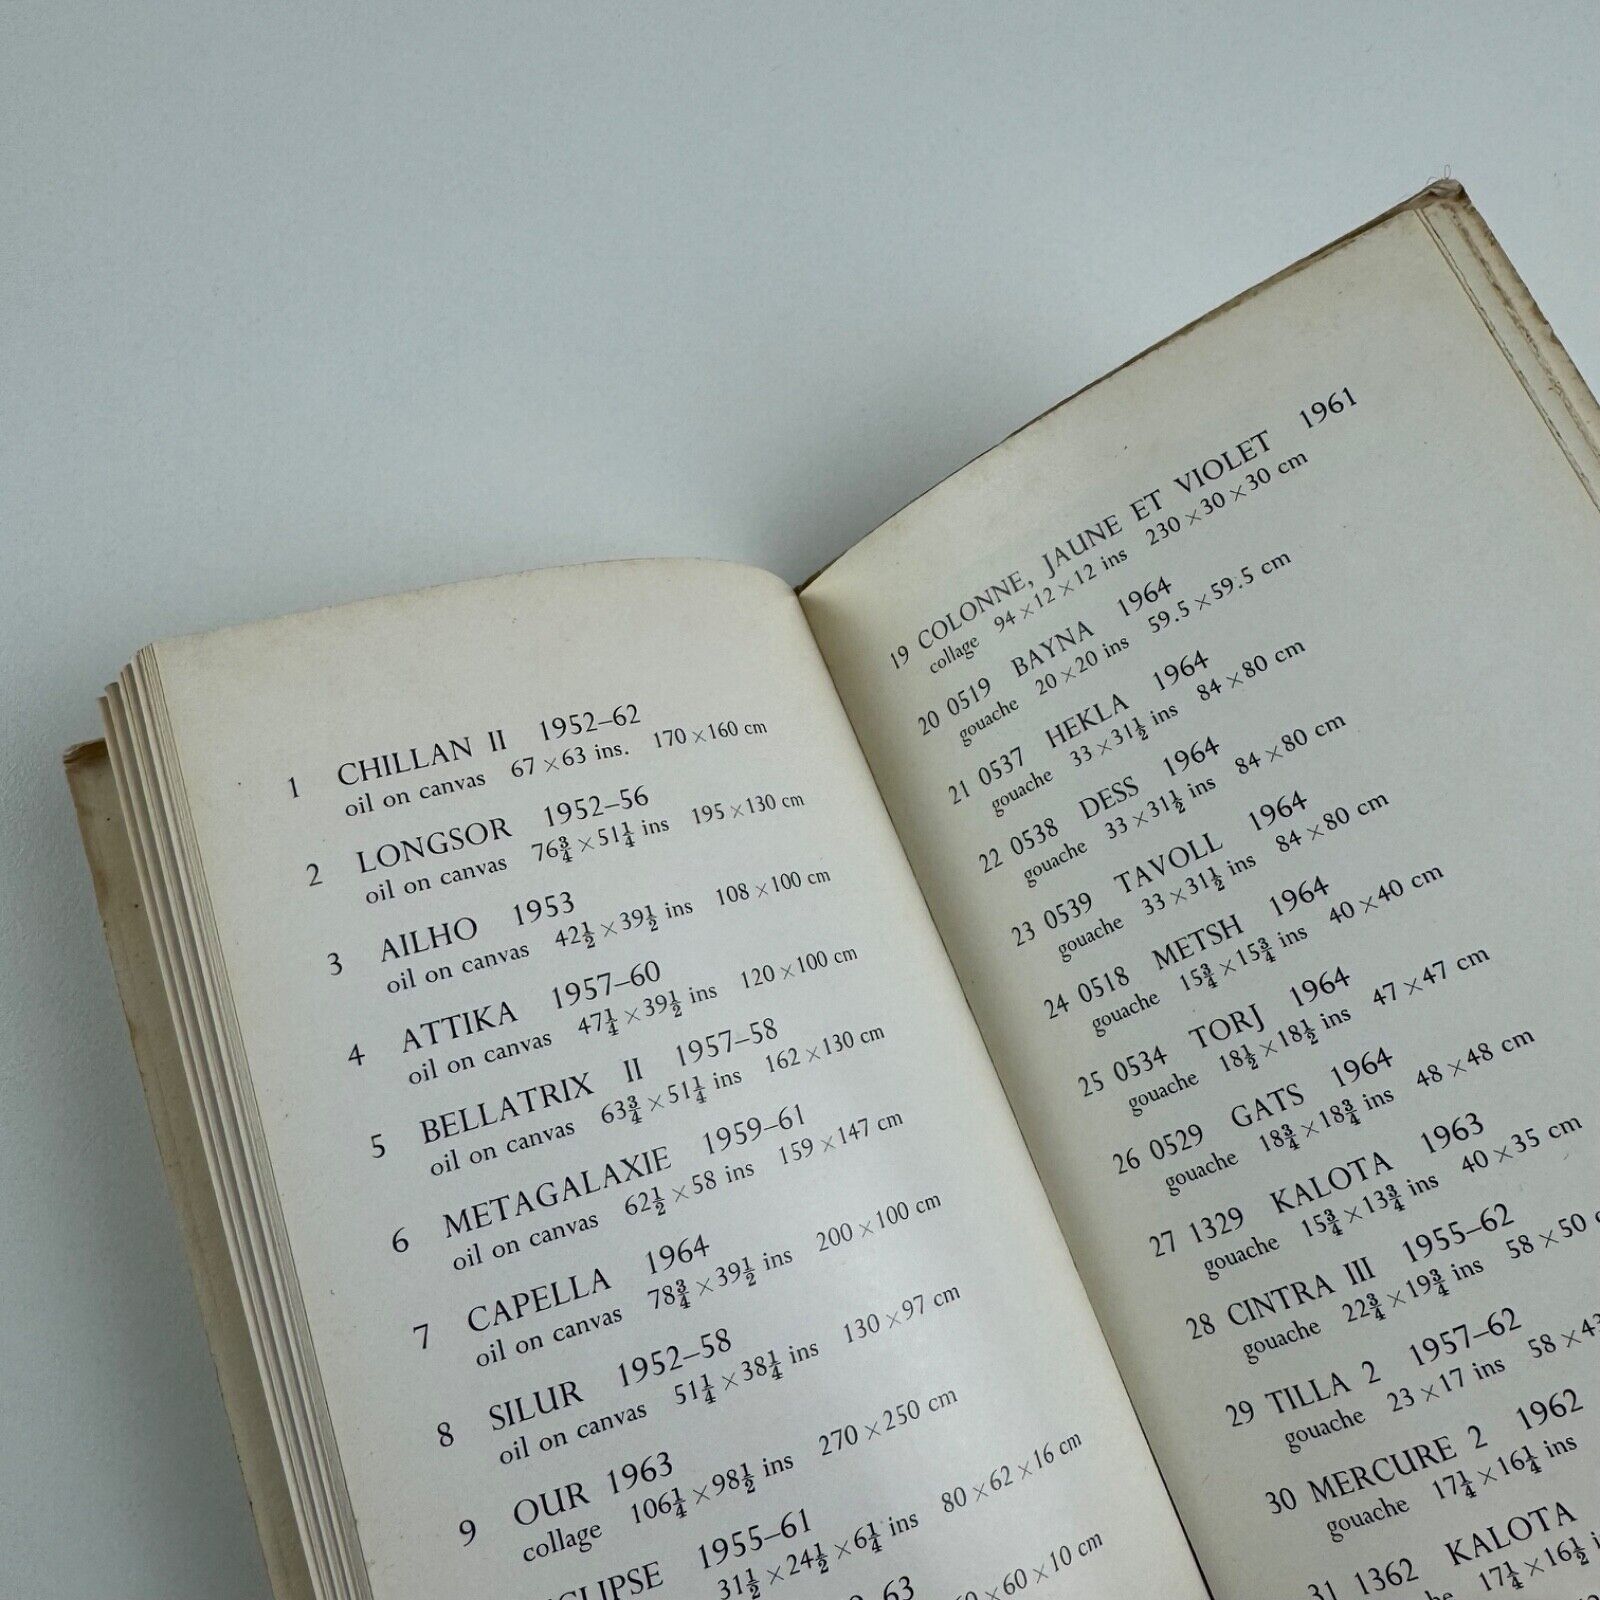 1 CHILLAN II 1952–62
oil on canvas 67×63 ins. 170×160 cm
2 LONGSOR 1952–56
oil on canvas 76¾×51¼ ins 195×130 cm
3 AILHO 1953
oil on canvas 42½×39½ ins 108×100 cm
4 ATTIKA 1957–60
oil on canvas 47¼×39½ ins 120×100 cm
5 BELLATRIX II 1957–58
oil on canvas 63¾×51¼ ins 162×130 cm
6 METAGALAXIE 1959–61
oil on canvas 62½×58 ins 159×147 cm
7 CAPELLA 1964
oil on canvas 78¾×39½ ins 200×100 cm
8 SILUR 1952–58
oil on canvas 51¼×38¼ ins 130×97 cm
9 OUR 1963
collage 106¼×98½ ins 270×250 cm
CLIPSE 1955–61
31½×24½×6¼ ins 80×62×16 cm
63 ×60×10 cm
19 COLONNE, JAUNE ET VIOLET 1961
collage 94×12×12 ins 230×30×30 cm
20 0519 BAYNA 1964
gouache 20×20 ins 59.5×59.5 cm
21 0537 HEKLA 1964
gouache 33×31½ ins 84×80 cm
22 0538 DESS 1964
gouache 33×31½ ins 84×80 cm
23 0539 TAVOLL 1964
gouache 33×31½ ins 84×80 cm
24 0518 METSH 1964
gouache 15¾×15¾ ins 40×40 cm
25 0534 TORJ 1964
gouache 18½×18½ ins 47×47 cm
26 0529 GATS 1964
gouache 18¾×18¾ ins 48×48 cm
27 1329 KALOTA 1963
gouache 15¾×13¾ ins 40×35 cm
28 CINTRA III 1955–62
gouache 22¾×19¾ ins 58×50
29 TILLA 2 1957–62
gouache 23×17 ins 58×43
30 MERCURE 2 1962
gouache 17¼×16¼ ins
31 1362 KALOTA
17¼×16½